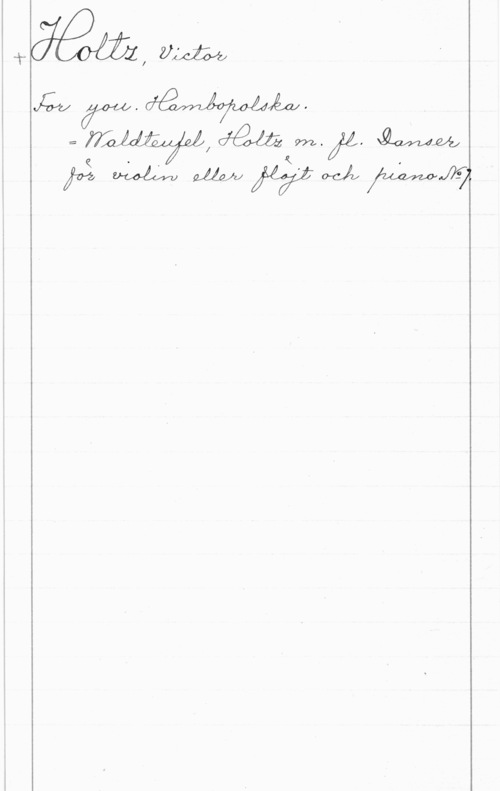 + Holtz, Victor
For you. Hambopolska.
= Waldteufel, Holtz m. fl. Danser
för violin eller flöjt och piano № 7.